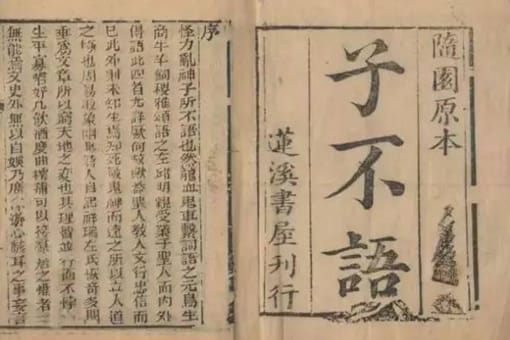 隨園原本
子不語
蓮溪書屋刊行
序
怪力亂神子所不語也然龍血鬼車繫詞語之元鳥生
商牛羊飼稷雅頌語之左邱明親受業于聖人而內外
傳語此四者尤詳厥何故歟蓋聖人教人文行忠信而
已此外則未知生焉知死敬鬼神而遠之所以立人道
之極也周易取象幽渺詩人自記祥瑞左氏恢奇多聞
垂為文章所以窮天地之變也其理皆並行而不悖
生平寡嗜好凡飲酒度曲樗蒲可以接羣居之懽者
無能焉文史外無以自娛乃廣游心駭耳之事妄言